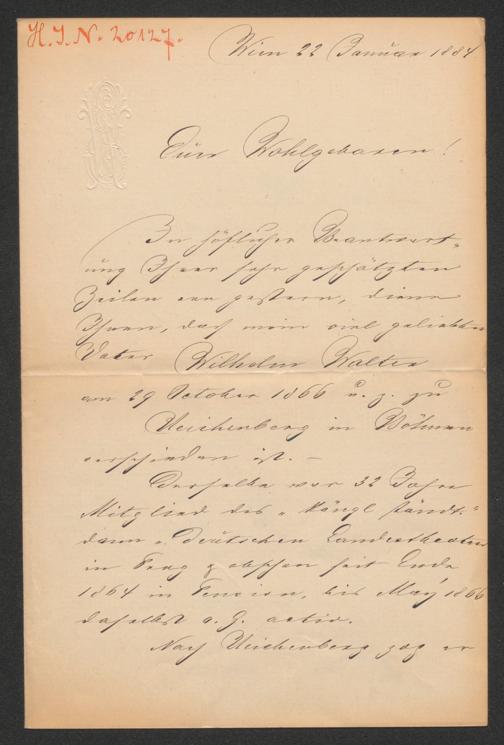 H. I. N. 20127.
Wien 22 Januar 1884
Euer Wohlgeboren!
In höflicher Beantwort-
ung Ihrer sehr geschätzten
Zeilen von gestern, diene
Ihnen, daß mein viel geliebter
Vater Wilhelm Walter
am 29 October 1866 u. z. zu
Reichenberg in Böhmen
verschieden ist. –
Derselbe war 32 Jahre
Mitglied des „königl ständ:"
dann „Deutschen Landestheater
in Prag & obschon seit Ende
1864 in Pension, bis May 1866
daselbst a. G. activ.
Nach Reichenberg zog er